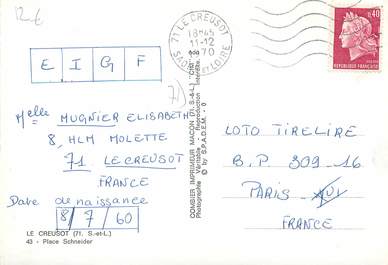 12€
71 LE CREUSOT
18H45
11-12
1970
SAONE ET LOIRE
0,40
REPUBLIQUE FRANÇAISE
E I G F
71
Melle MUGNIER ELISABETH
8, HLM MOLETTE
71 LE CREUSOT
FRANCE
Date de naissance
8/7/60
LE CREUSOT (71. S.-et-L.)
43 - Place Schneider
COMBIER IMPRIMEUR MACON (71. S.-&-L.) "CIM"
Photographie Véritable - Reproduction Interdite
© by S.P.A.D.E.M. - 0
LOTO TIRELIRE
B.P 309-16
PARIS
FRANCE